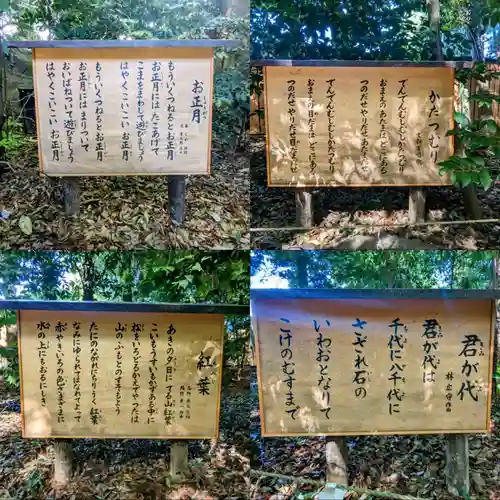 お正月
もういくつねるとお正月
お正月には たこあげて
こまをまわして遊びましょう
はやくこいこいお正月
もういくつねるとお正月
お正月には まりついて
おいばねついて遊びましょう
はやくこいこいお正月
かたつむり
でんでんむしむしかたつむり
おまえのあたまはどこにある
つのだせやりだせあたまだせ
でんでんむしむしかたつむり
おまえのめだまはどこにある
つのだせやりだせめだまだせ
紅葉
あきの夕日に てる山 紅葉
こいもうすいもかずある中に
松をいろどるかえでやつたは
山のふもとのすそもよう
たにのながれにちりうく紅葉
なみにゆられてはなれてよって
赤やきいろの色さまざまに
水の上にもおるにしき
君が代
林広守 作曲
君が代は
千代に八千代に
さざれ石の
いわおとなりて
こけのむすまで